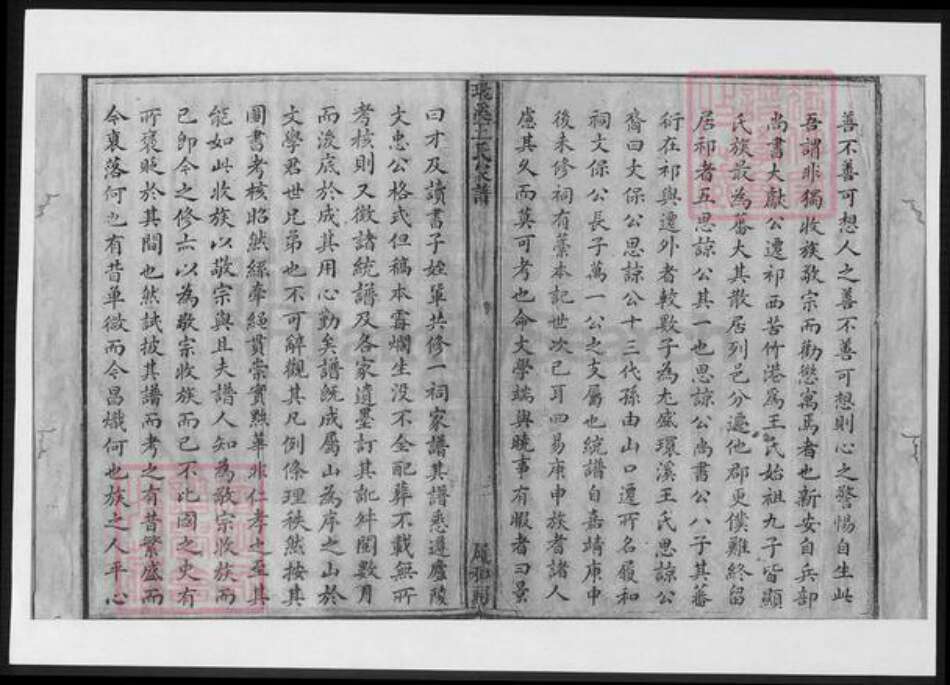 善不善可想人之善不善可想則心之警惕自生此
吾謂非獨收族敬宗而勸懲寓焉者也新安自兵部
尚書大獻公遷祁西苦竹港為王氏始祖九子皆顯
氏族最為蕃大其散居列邑分遍他郡更僕難終留
居祁者五思諒公其一也思諒公尚書公八子其蕃
衍在祁與遷外者較數子為尤盛環溪王氏思諒公
裔曰文保公思諒公十三代孫由山口遷所名履和
祠文保公長子萬一公之支屬也統譜自嘉靖庚申
後未修祠有藁本記世次已耳四易庚申族者諸人
慮其久而莫可考也命文學端與曉事有暇者曰景
環溪王氏家譜
履和祠
曰才及讀書子姪輩共修一祠家譜其譜悉遵廬陵
文忠公格式但稿本霉爛生没不全配葬不載無所
考核則又徵諸統譜及各家遺墨訂其訛舛閱數月
而後底於成其用心勤矣譜既成屬山為序之山於
文學君世兄弟也不可辭觀其凡例條理秩然按其
圖書考核昭然絲牽繩貫崇實黜華非仁孝之至其
能如此收族以敬宗與且夫譜人知為敬宗收族而
已即今之修亦以為敬宗收族而已不比國之史有
所褒貶於其間也然試披其譜而考之有昔繁盛而
今衰落何也有昔單微而今昌熾何也族之人平心